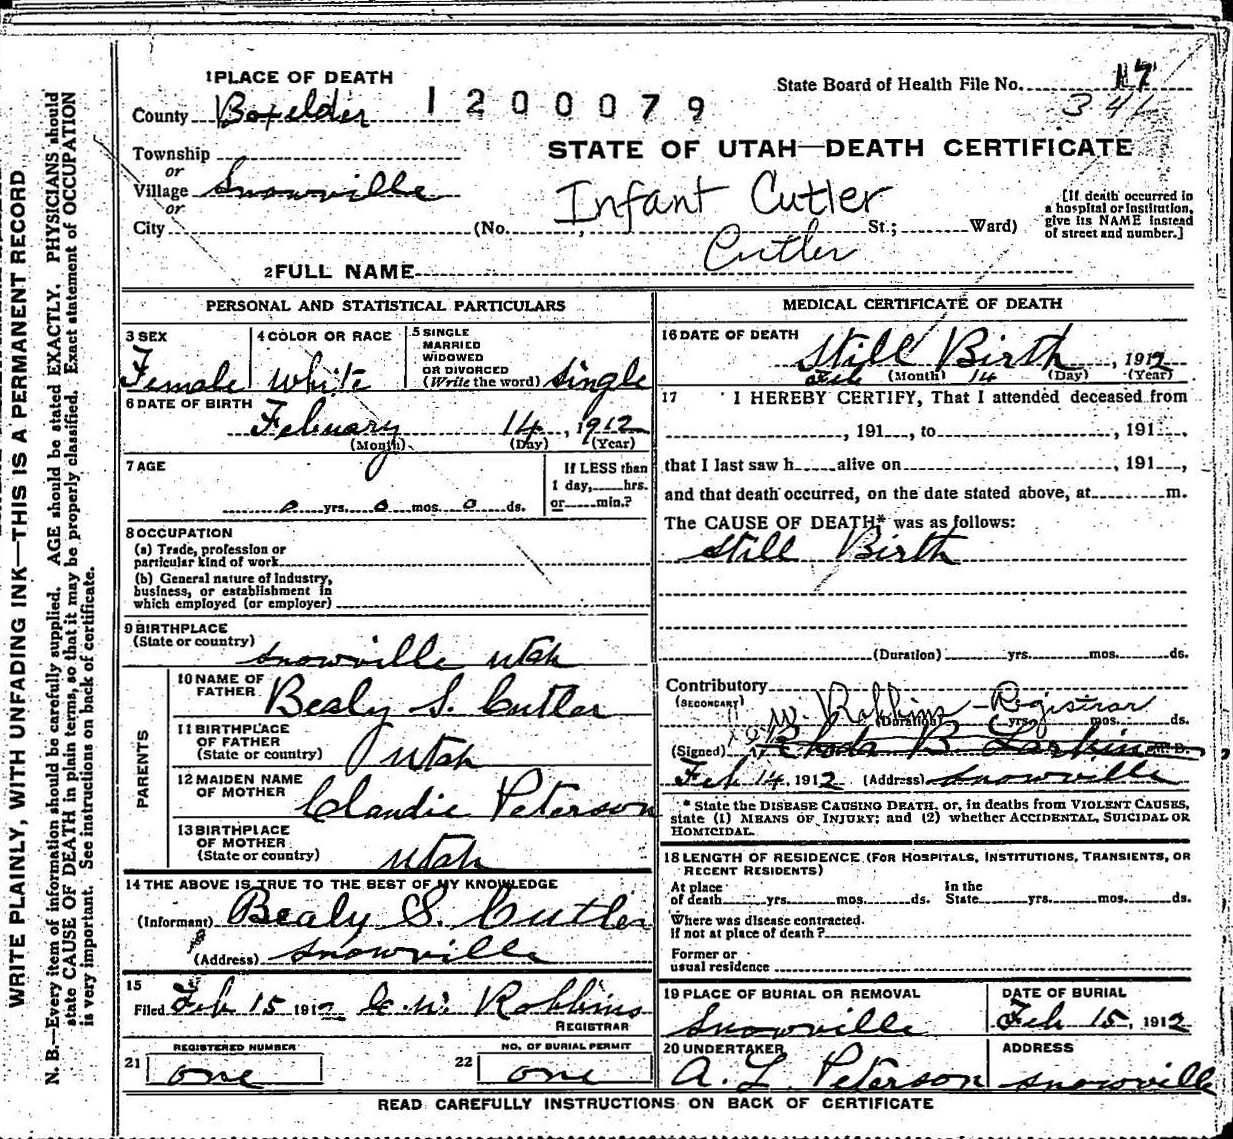 1 PLACE OF DEATH
State Board of Health File No. 17
County Boxelder 1200079
341
Township
or
STATE OF UTAH—DEATH CERTIFICATE
Village Snowville
or
Infant Cutler
[If death occurred in a hospital or institution, give its NAME instead of street and number.]
City (No. , St.; Ward)
2 FULL NAME Cutler
PERSONAL AND STATISTICAL PARTICULARS
3 SEX
Female
4 COLOR OR RACE
white
5 SINGLE
MARRIED
WIDOWED
OR DIVORCED
(Write the word) single
6 DATE OF BIRTH
February 14, 1912
(Month) (Day) (Year)
7 AGE
0 yrs. 0 mos. 0 ds.
If LESS than
1 day, hrs.
or min.?
8 OCCUPATION
(a) Trade, profession or
particular kind of work
(b) General nature of Industry,
business, or establishment in
which employed (or employer)
9 BIRTHPLACE
(State or country)
Snowville Utah
PARENTS
10 NAME OF
FATHER Bealy S. Cutler
11 BIRTHPLACE
OF FATHER
(State or country) Utah
12 MAIDEN NAME
OF MOTHER Claudie Peterson
13 BIRTHPLACE
OF MOTHER
(State or country) Utah
14 THE ABOVE IS TRUE TO THE BEST OF MY KNOWLEDGE
(Informant) Bealy S. Cutler
(Address) Snowville
15
Filed Feb 15 1912 Robbins
REGISTRAR
REGISTERED NUMBER
21 one
NO. OF BURIAL PERMIT
22 one
MEDICAL CERTIFICATE OF DEATH
16 DATE OF DEATH
Still Birth, 1912
Feb (Month) 14 (Day) (Year)
17 I HEREBY CERTIFY, That I attended deceased from
, 191 , to , 191 ,
that I last saw h alive on , 191 ,
and that death occurred, on the date stated above, at m.
The CAUSE OF DEATH* was as follows:
Still Birth
(Duration) yrs. mos. ds.
Contributory
(SECONDARY) W. Robbins - Registrar
(Duration) yrs. mos. ds.
(Signed) Rhoda B. Larkin M. D.,
Feb 14, 1912 (Address) Snowville
* State the DISEASE CAUSING DEATH, or, in deaths from VIOLENT CAUSES,
state (1) MEANS OF INJURY; and (2) whether ACCIDENTAL, SUICIDAL OR
HOMICIDAL.
18 LENGTH OF RESIDENCE (FOR HOSPITALS, INSTITUTIONS, TRANSIENTS, OR
RECENT RESIDENTS)
At place
of death yrs. mos. ds.
In the
State yrs. mos. ds.
Where was disease contracted.
If not at place of death?
Former or
usual residence
19 PLACE OF BURIAL OR REMOVAL
Snowville
DATE OF BURIAL
Feb 15, 1912
20 UNDERTAKER
A. L. Peterson
ADDRESS
Snowville
READ CAREFULLY INSTRUCTIONS ON BACK OF CERTIFICATE
WRITE PLAINLY, WITH UNFADING INK—THIS IS A PERMANENT RECORD
N. B.—Every item of information should be carefully supplied. AGE should be stated EXACTLY. PHYSICIANS should
state CAUSE OF DEATH in plain terms, so that it may be properly classified. Exact statement of OCCUPATION
is very important. See instructions on back of certificate.